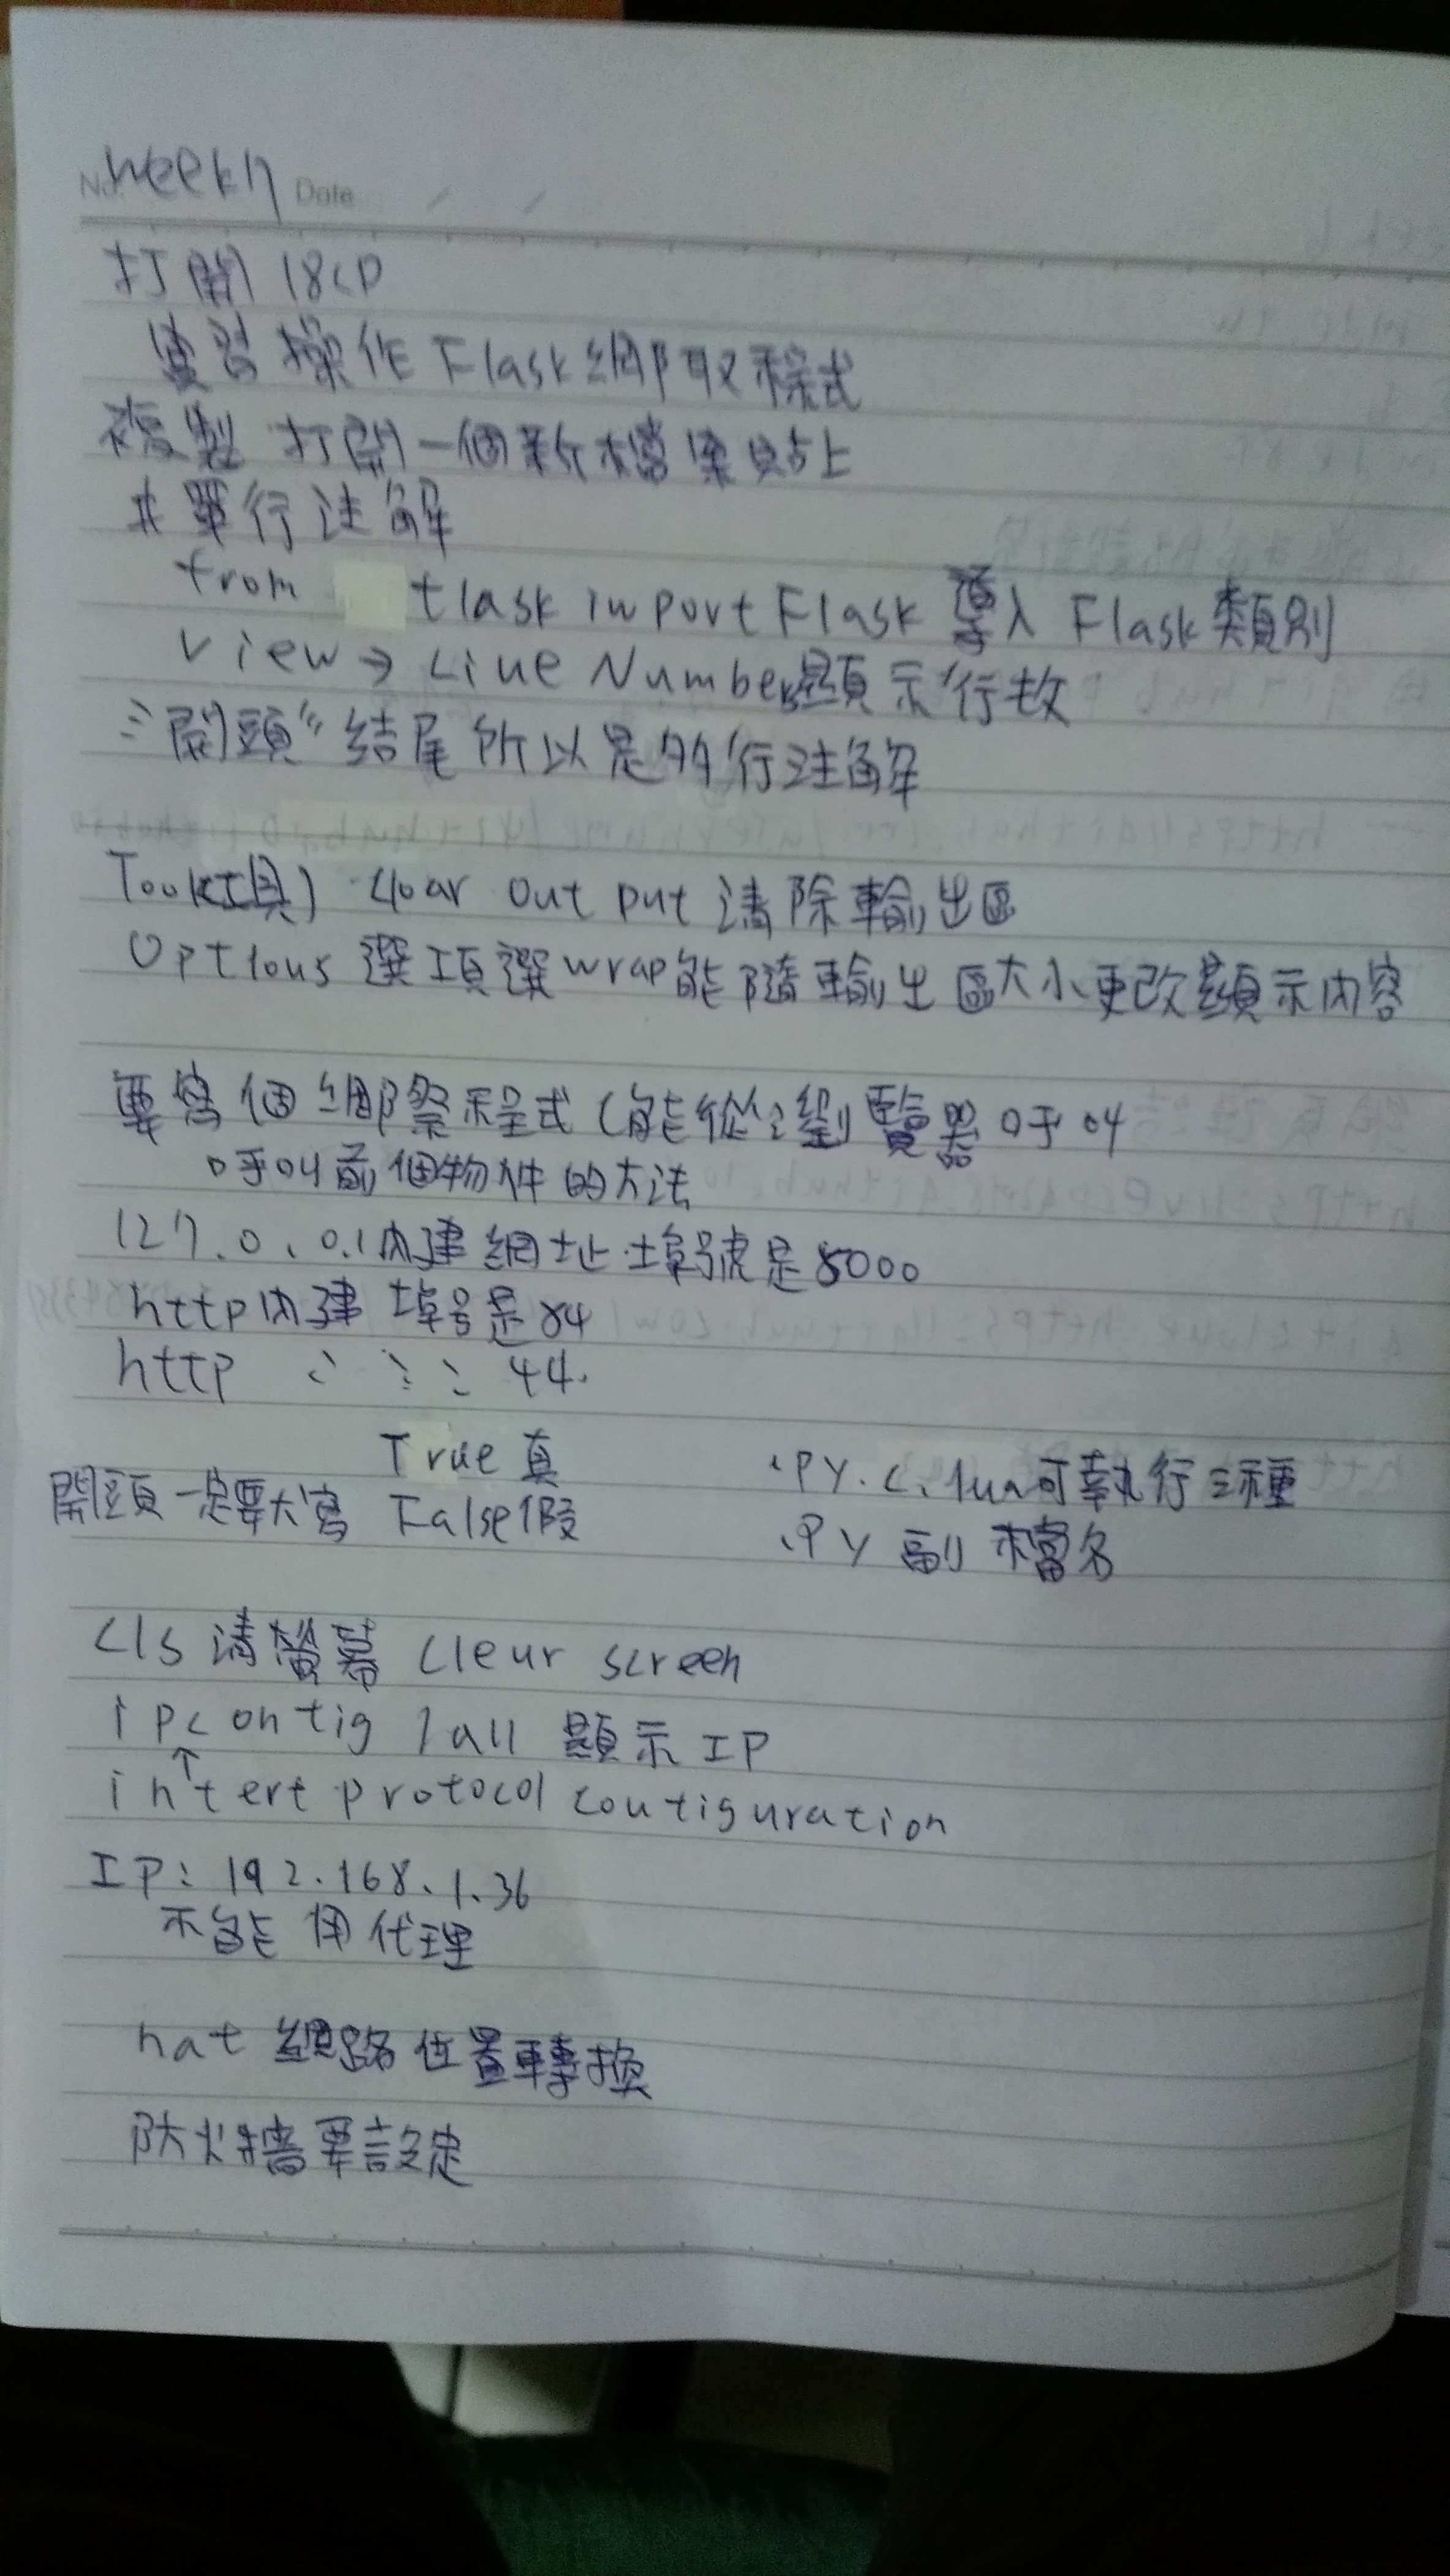 No. week17 Date / /
打開 18CD
實習操作 Flask 網取程式
複製 打開一個新檔案貼上
# 單行注解
from flask import Flask 導入 Flask 類別
view → Line Number 顯示行教
'''開頭''' 結尾所以是多行注解
Tool(工具) clear out put 清除輸出區
Options 選項選 wrap 能隨輸出區大小更改顯示內容
要寫個網際程式(能從瀏覽器呼叫
呼叫前個物件的方法
127.0.0.1內建網址 埠號是5000
http內建 埠号是84
http 〃 〃 〃 44.
True 真
.py.c.lua可執行三種
開頭一定要大寫 False假
.py 副檔名
cls 清螢幕 clear screen
ipconfig /all 顯示 IP
↑
intert protocol configuration
IP: 192.168.1.36
不能用代理
nat 網路位置轉換
防火牆要設定